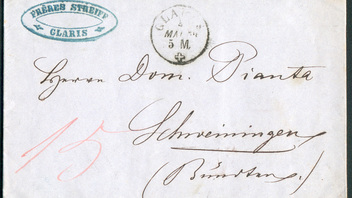 FRÈRES STREIFF
GLARIS
GLA
MAI
5 M.
Herrn Dom. Pianta
Schweiningen
(Bündten)
15